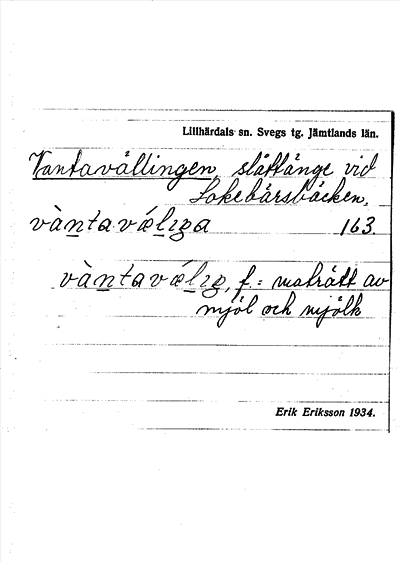 Lillhärdals sn. Svegs tg. Jämtlands län.
Vantavällingen, slåttänge vid
Lokebärsbäcken.
vàntavǽlıga 163.
vàntavǽlıg, f. = maträtt av
mjöl och mjölk
Erik Eriksson 1934.